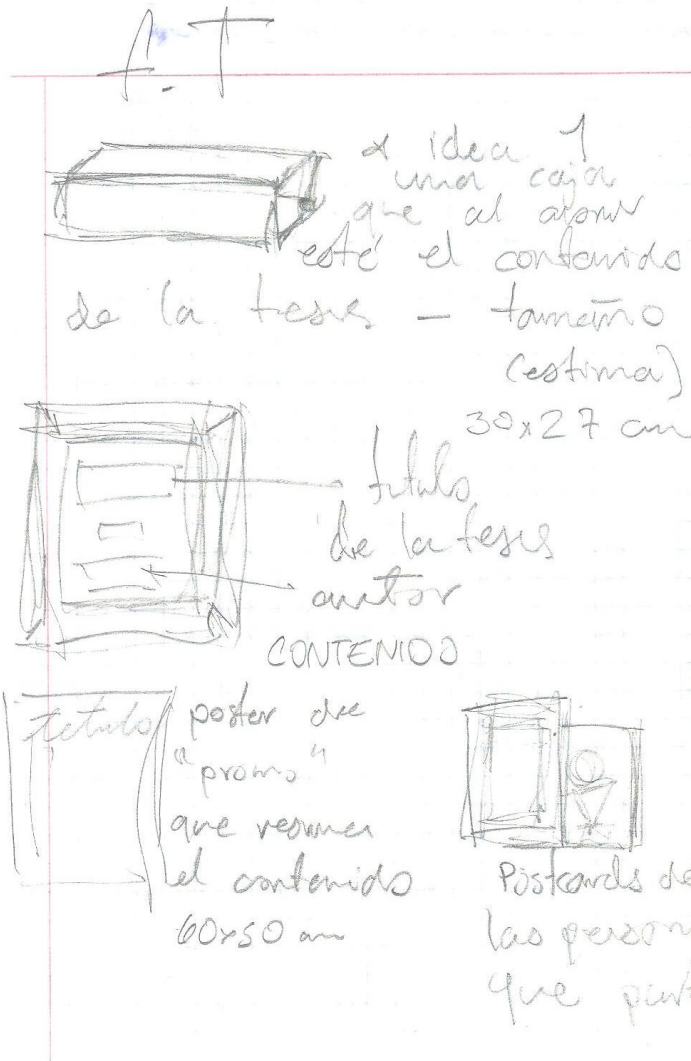 A.T
idea 1
una caja
que al abrir
esté el contenido
de la tesis — tamaño
(estima)
30x27 cm
titulo
de la tesis
autor
CONTENIDO
titulo
poster de
"promo"
que resuma
el contenido
60x50 cm
Postcards de
las person
que part